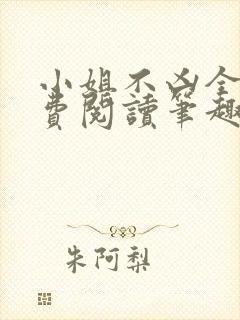 小姐不凶全
費閱讀筆趣
朱阿梨